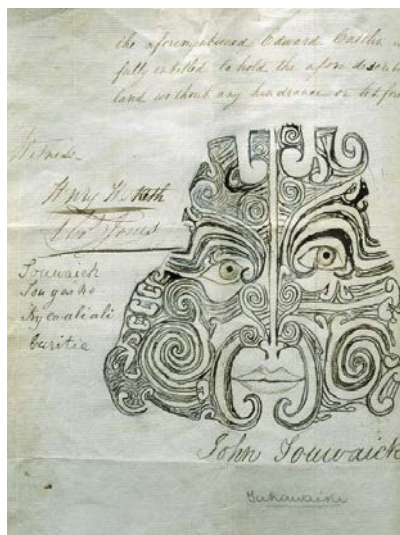 the aforementioned Edward Catlin
fully entitled to hold the afore describ
land without any hindrance or let for
Witness
Jones
Touwaick
Tougasho
Kycoaliali
Curitie
John Touwaick
Tuhawaiki